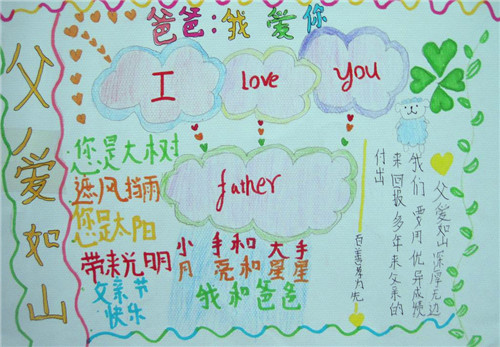 爸爸:我爱你
父爱如山
I
love
You
father
你是大树
遮风挡雨
你是太阳
带来光明
父亲节
快乐
小手和大手
月亮和星星
我和爸爸
父爱如山深厚无边
我们要用优异成绩
来回报多年来父亲的
付出
百善孝为先